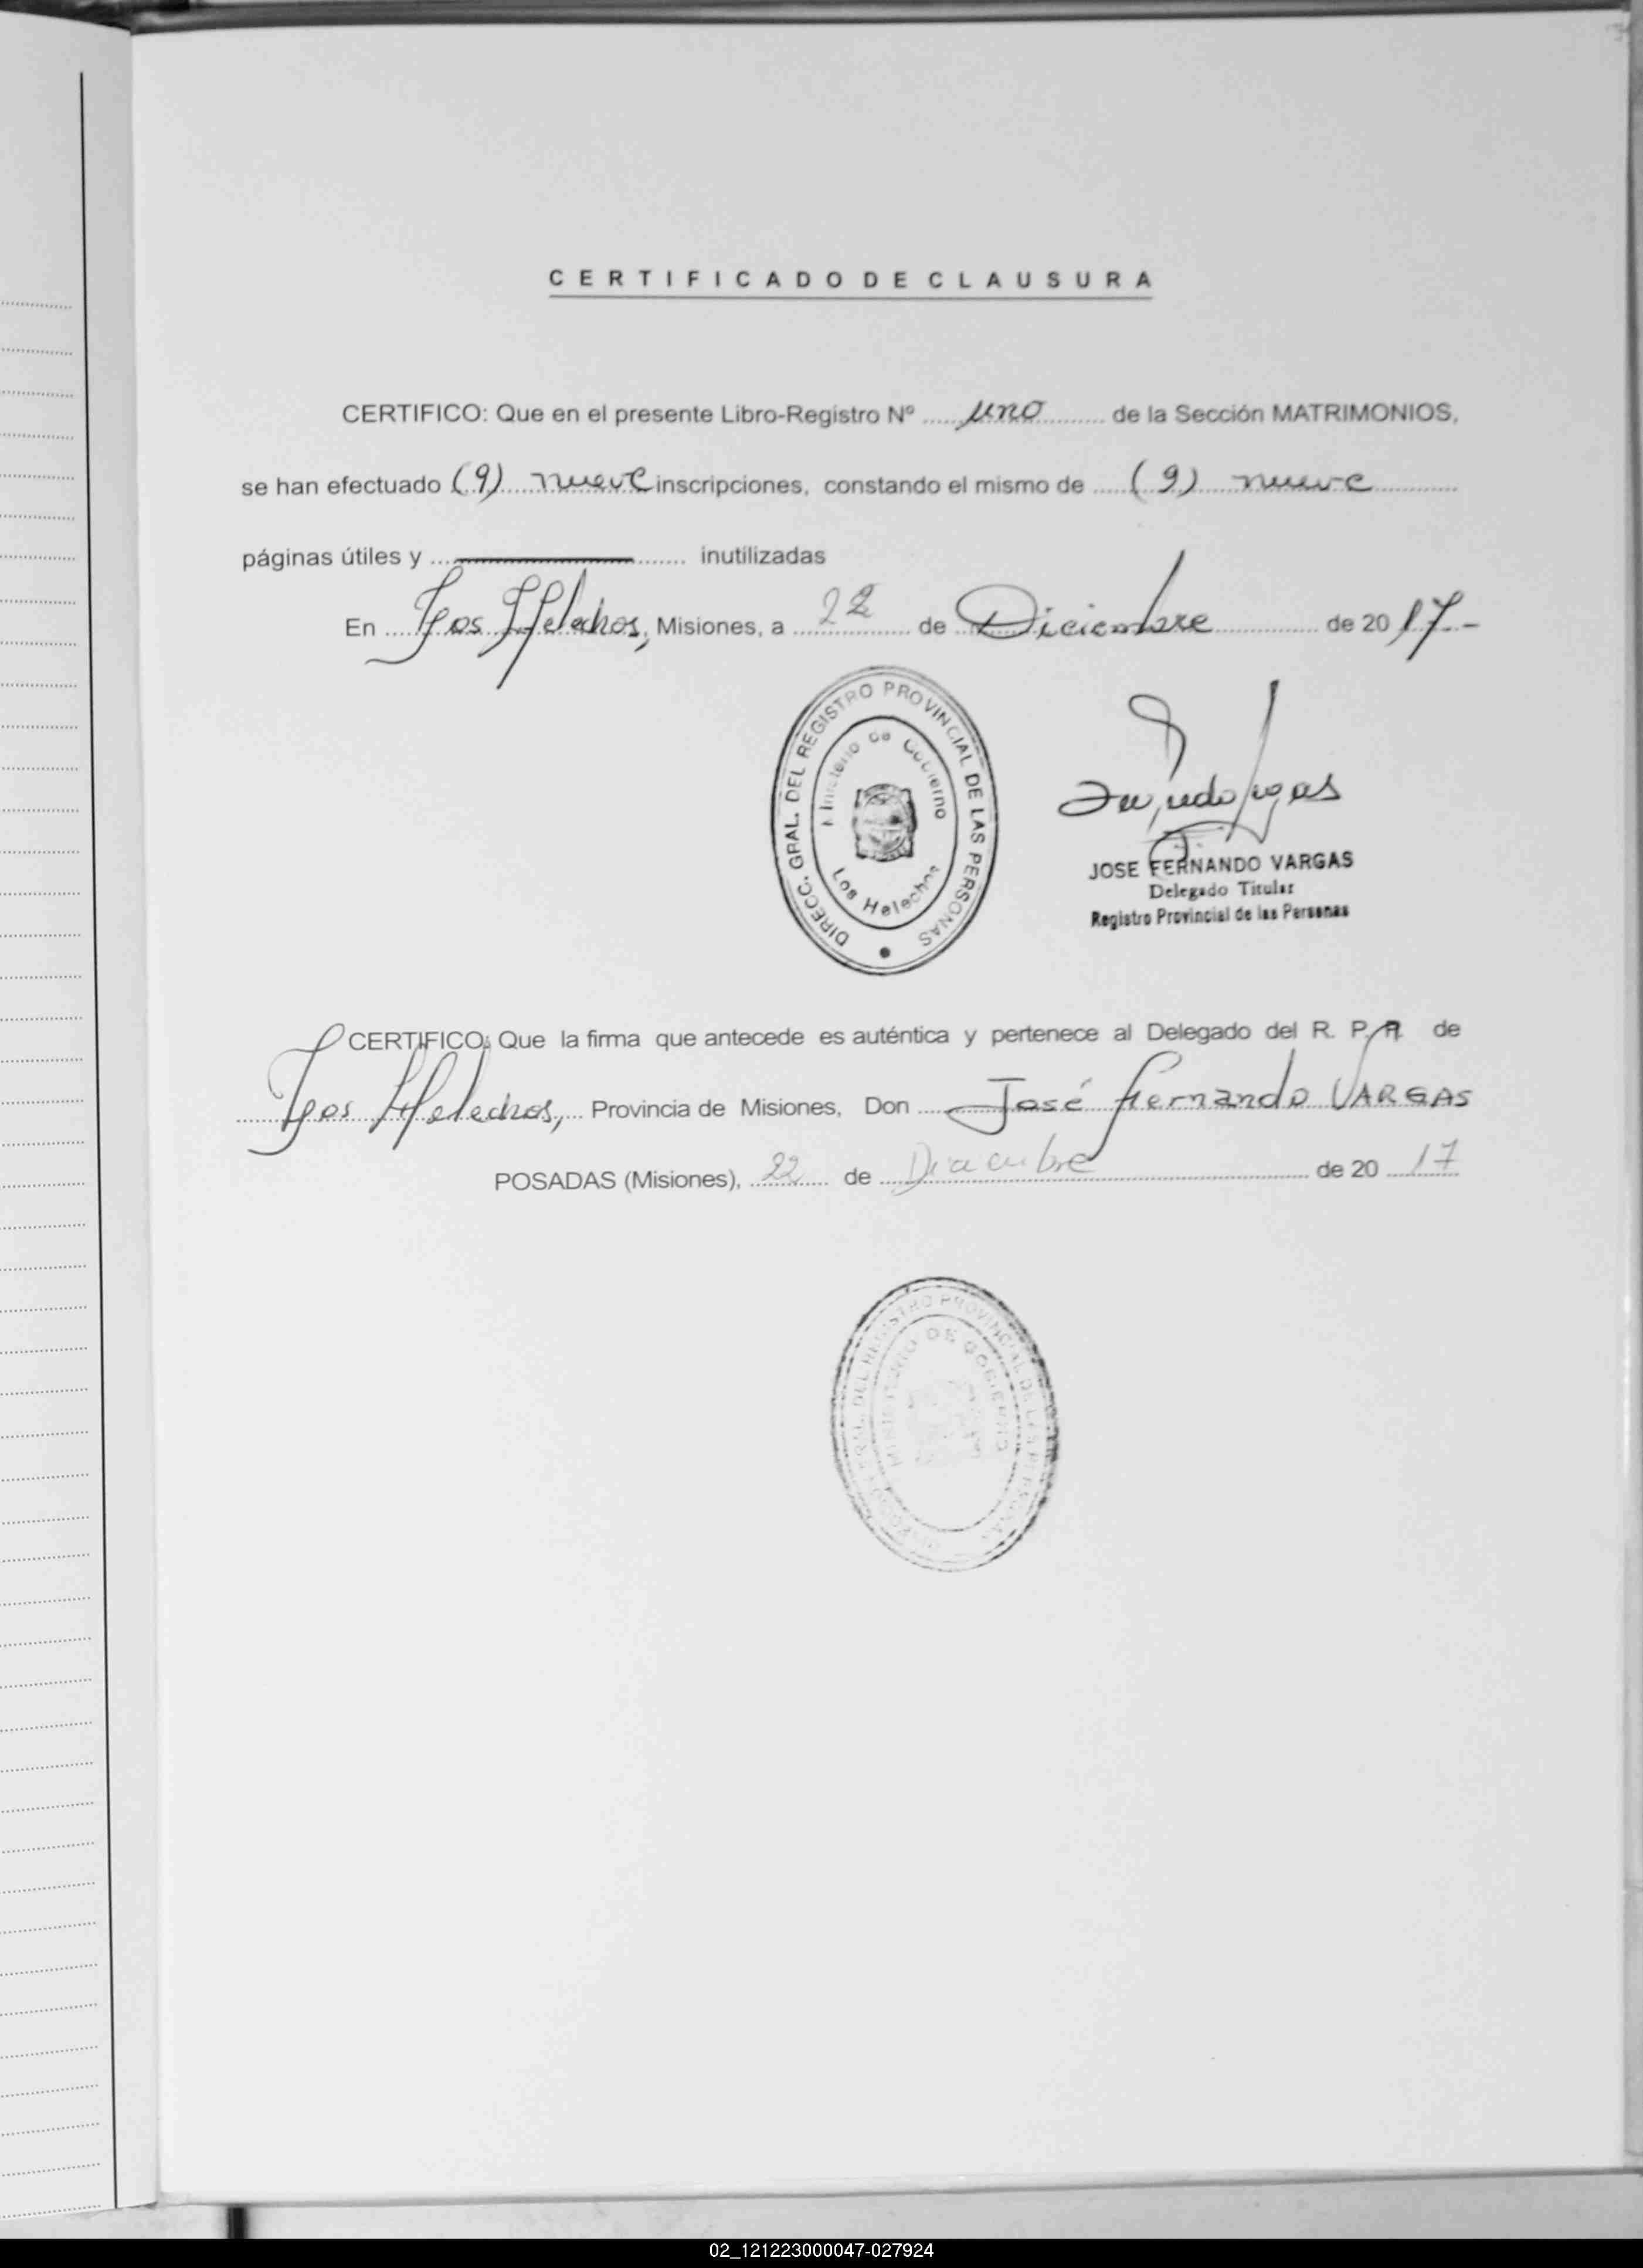 CERTIFICADO DE CLAUSURA
CERTIFICO: Que en el presente Libro-Registro Nº uno de la Sección MATRIMONIOS,
se han efectuado (9) nueve inscripciones, constando el mismo de (9) nueve
páginas útiles y inutilizadas
En Los Helechos, Misiones, a 22 de Diciembre de 2017.-
DIRECC. GRAL. DEL REGISTRO PROVINCIAL DE LAS PERSONAS
Ministerio de Gobierno
Los Helechos
JOSE FERNANDO VARGAS
Delegado Titular
Registro Provincial de las Personas
CERTIFICO: Que la firma que antecede es auténtica y pertenece al Delegado del R. P. de
Los Helechos, Provincia de Misiones, Don José Fernando VARGAS
POSADAS (Misiones), 22 de Diciembre de 2017
REGISTRO PROVINCIAL DE LAS PERSONAS
MINISTERIO DE GOBIERNO
02_121223000047-027924